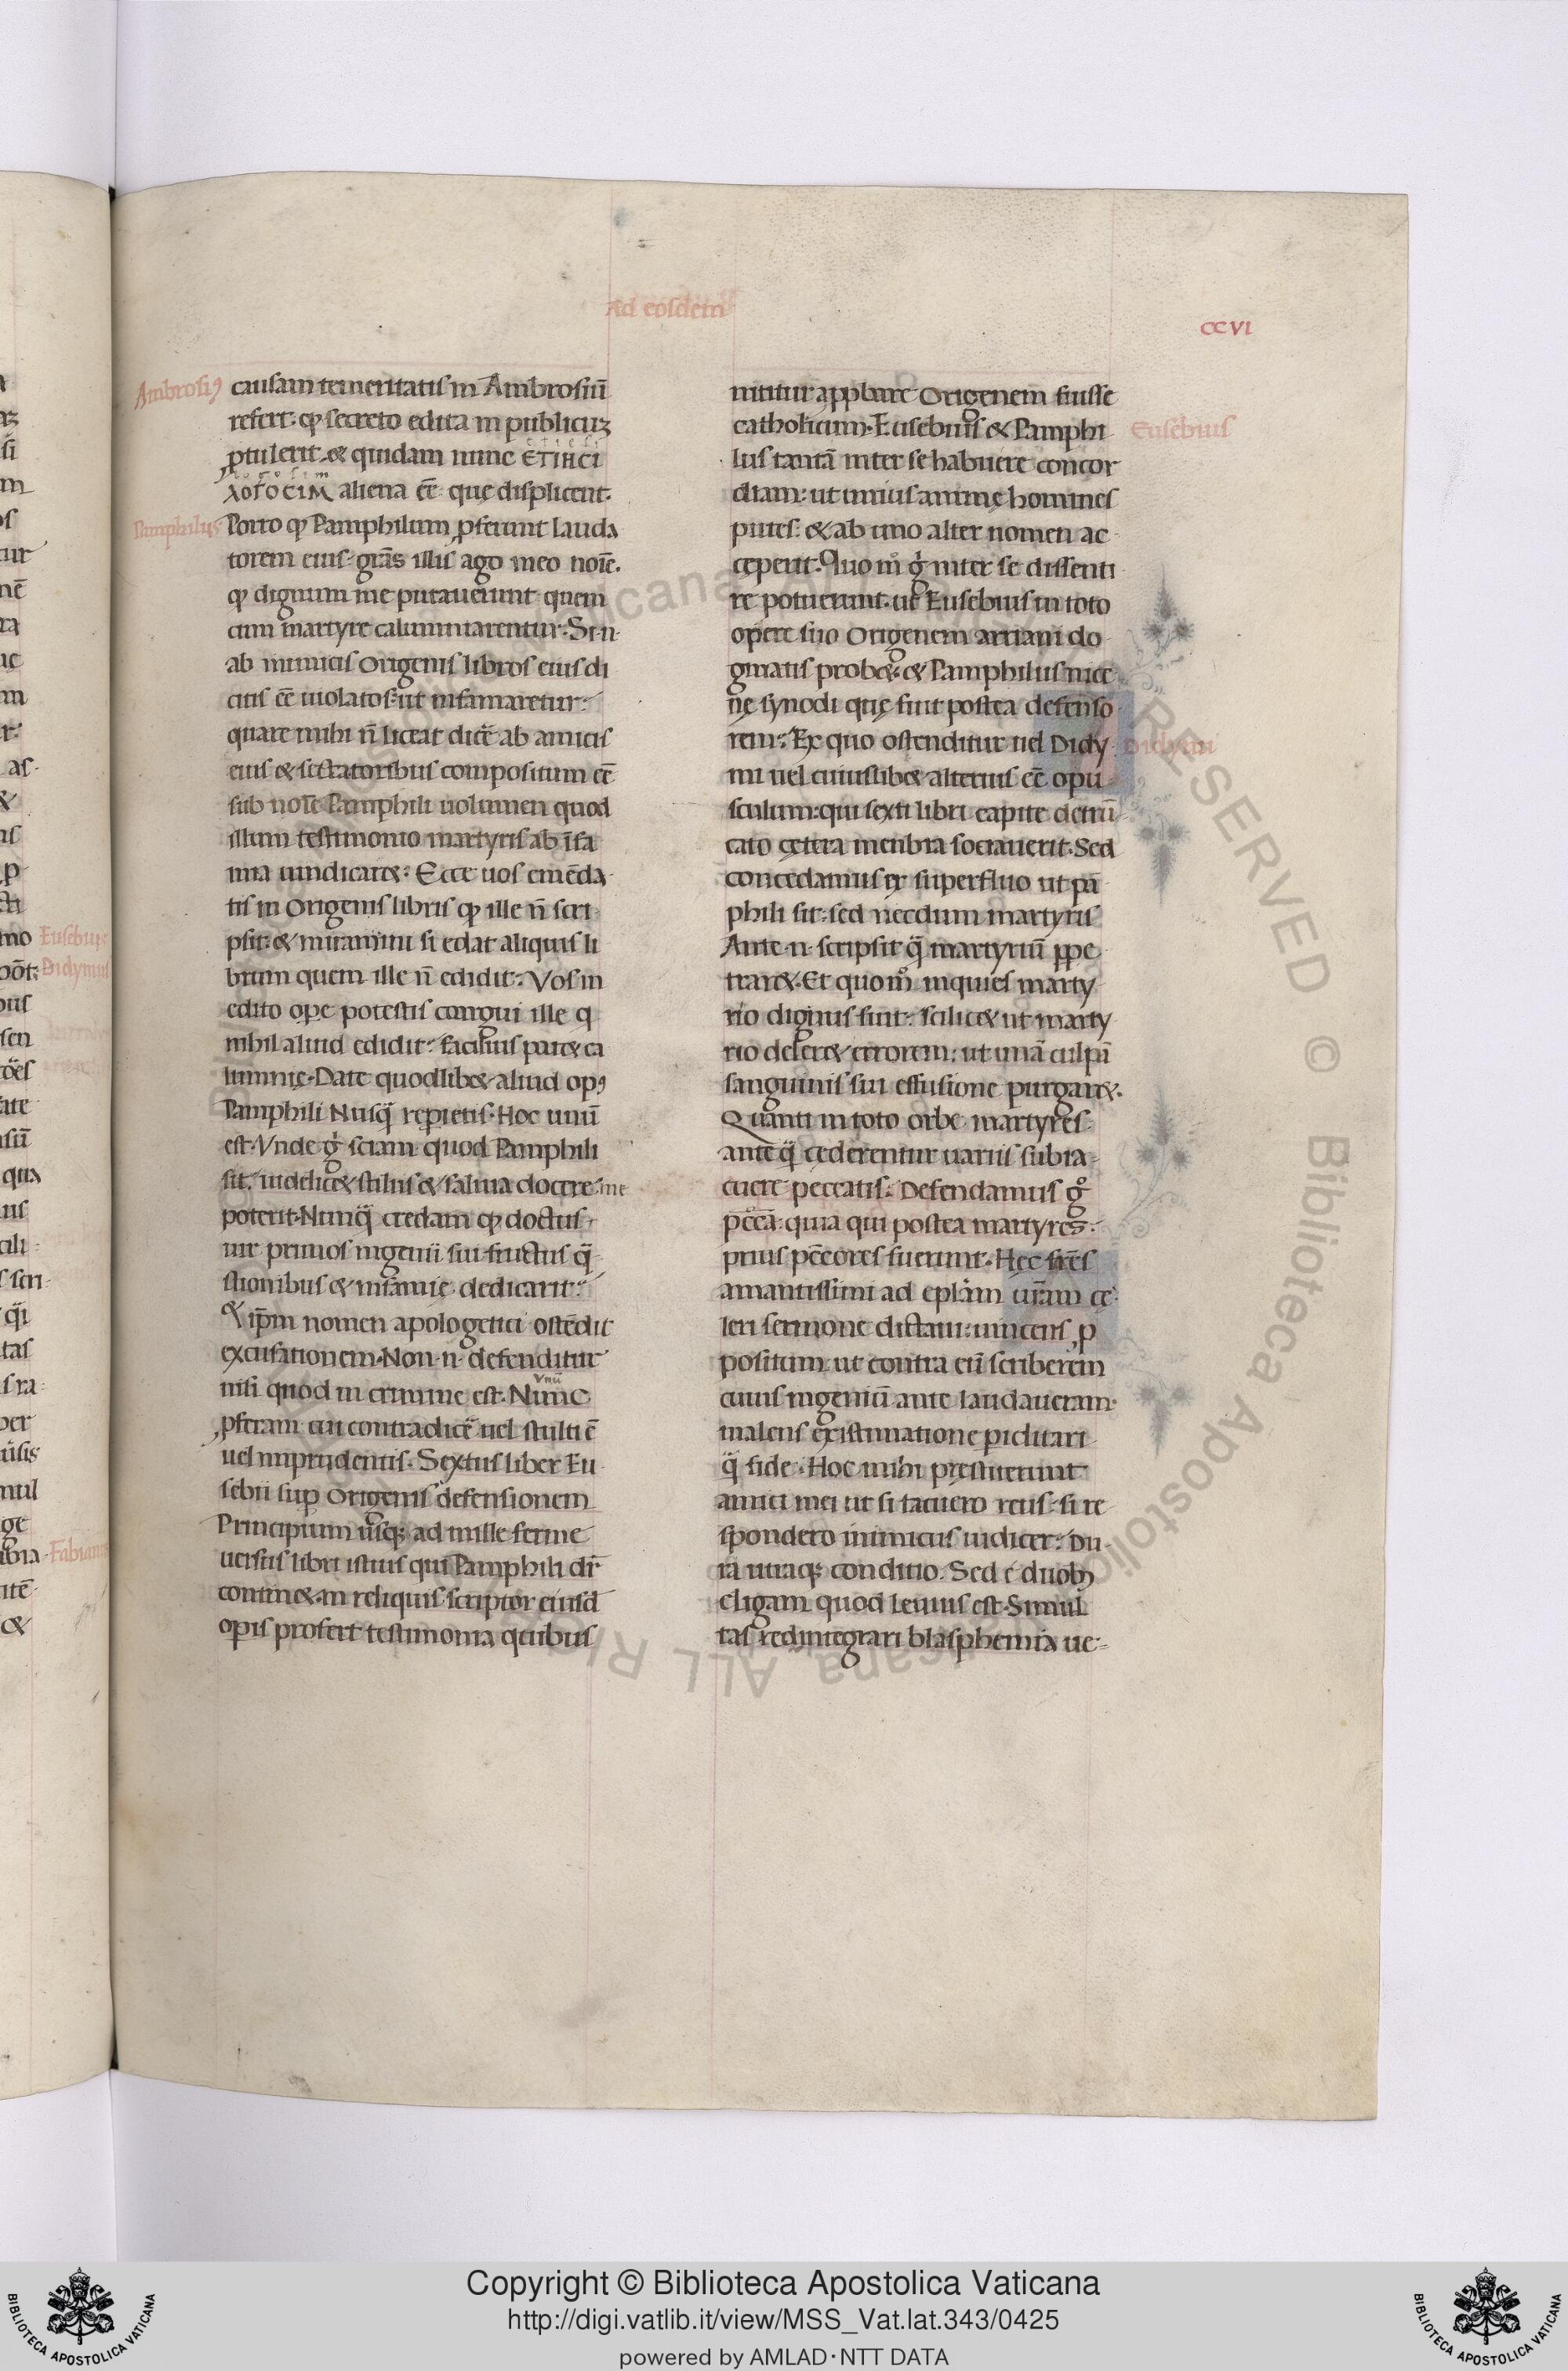 Ad eosdem
CCVI
Ambrosiꝰ
causam temeritatis in Ambrosiū
refert: qꝫ secreto edita in publicuꝫ
ꝓtulerit. & quidam nunc
aliena eē que displicent.
Pamphilus
Porro qꝫ Pamphilum ꝓferunt lauda
torem eius. grās illis ago meo noīe.
qꝫ dignum me putauerunt quem
cum martyre calumniarentur. Si .n.
ab inimicis Origenis libros eius di
citis eē uiolatos: ut infamaretur:
quare mihi ñ liceat dicẽ ab amicis
eius & sectatoribus compositum eē
sub noīe Pamphili uolumen quod
illum testimonio martyris ab īfa
mia uindicar&. Ecce uos emēda
tis in Origenis libris qꝫ ille ñ scri
psit: & miramini si edat aliquis li
brum quem ille ñ edidit: Vos in
edito ope potestis coargui ille q
nihil aliud edidit: facilius pat& ca
lumnię. Date quodlib& aliud opꝰ
Pamphili Nusq̄ repietis. Hoc unū
est. Vnde g̊ sciam quod Pamphili
sit. uidelic& stilus & saliua docere me
poterit. Nunq̄ credam qꝫ doctus
uir primos ingenii sui fructus q̄
stionibus & infamię dedicarit:
& ip̄m nomen apologetici ostēdit
excusationem. Non .n. defenditur
nisi quod in crimine est. Nunc
vnū
ꝓferam cui contradicẽ uel stulti ē
uel imprudentis. Sextus liber Eu
sebii sup Origenis defensionem
Principium usqꝫ ad mille ferme
uersus libri istius qui Pamphili dr̄
contin&. in reliquis scriptor eiusd
opis profert testimonia quibus
nititur appbare Origenem fuisse
catholicum. Eusebius & Pamphi
Eusebius
lus tantā inter se habuere concor
diam: ut unius animę homines
putes: & ab uno alter nomen ac
ceperit. Quo m̊ g̊ inter se dissenti
re potuerunt. ut Eusebius in toto
opere suo Origenem arriani do
gmatis prob&. & Pamphilus nice
nę synodi quę fuit postea defenso
rem: Ex quo ostenditur uel Didy
Didymi
mi uel cuiuslib& alterius eē opu
sculum: qui sexti libri capite detrū
cato cętera menbra sociauerit. Sed
concedamus ex superfluo ut pā
phili sit: sed necdum martyris
Ante .n. scripsit q̄ martyriū ꝑpe
trar&. Et quom̊ inquies marty
rio dignus fuit: scilic& ut marty
rio deler& errorem: ut unā culpā
sanguinis sui effusione purgar&.
Quanti in toto orbe martyres
ante q̄ cederentur uariis subia
cuere peccatis. Defendamus g̊
pc̄cā: quia qui postea martyres
prius pc̄cores fuerunt. Hęc fr̄es
amantissimi ad eplām ur̄am ce
leri sermone dictaui: uincens ꝓ
positum ut contra eū scriberem
cuius ingeniū ante laudaueram.
malens existimatione piclitari
q̄ fide. Hoc mihi prestiterunt
amici mei ut si tacuero reus. si re
spondero inimicus iudicer: Du
ra utraqꝫ conditio. Sed e duobꝫ
eligam quod leuius est. Simul
tas redintegrari blasphemia ue
Copyright © Biblioteca Apostolica Vaticana
http://digi.vatlib.it/view/MSS_Vat.lat.343/0425
powered by AMLAD·NTT DATA